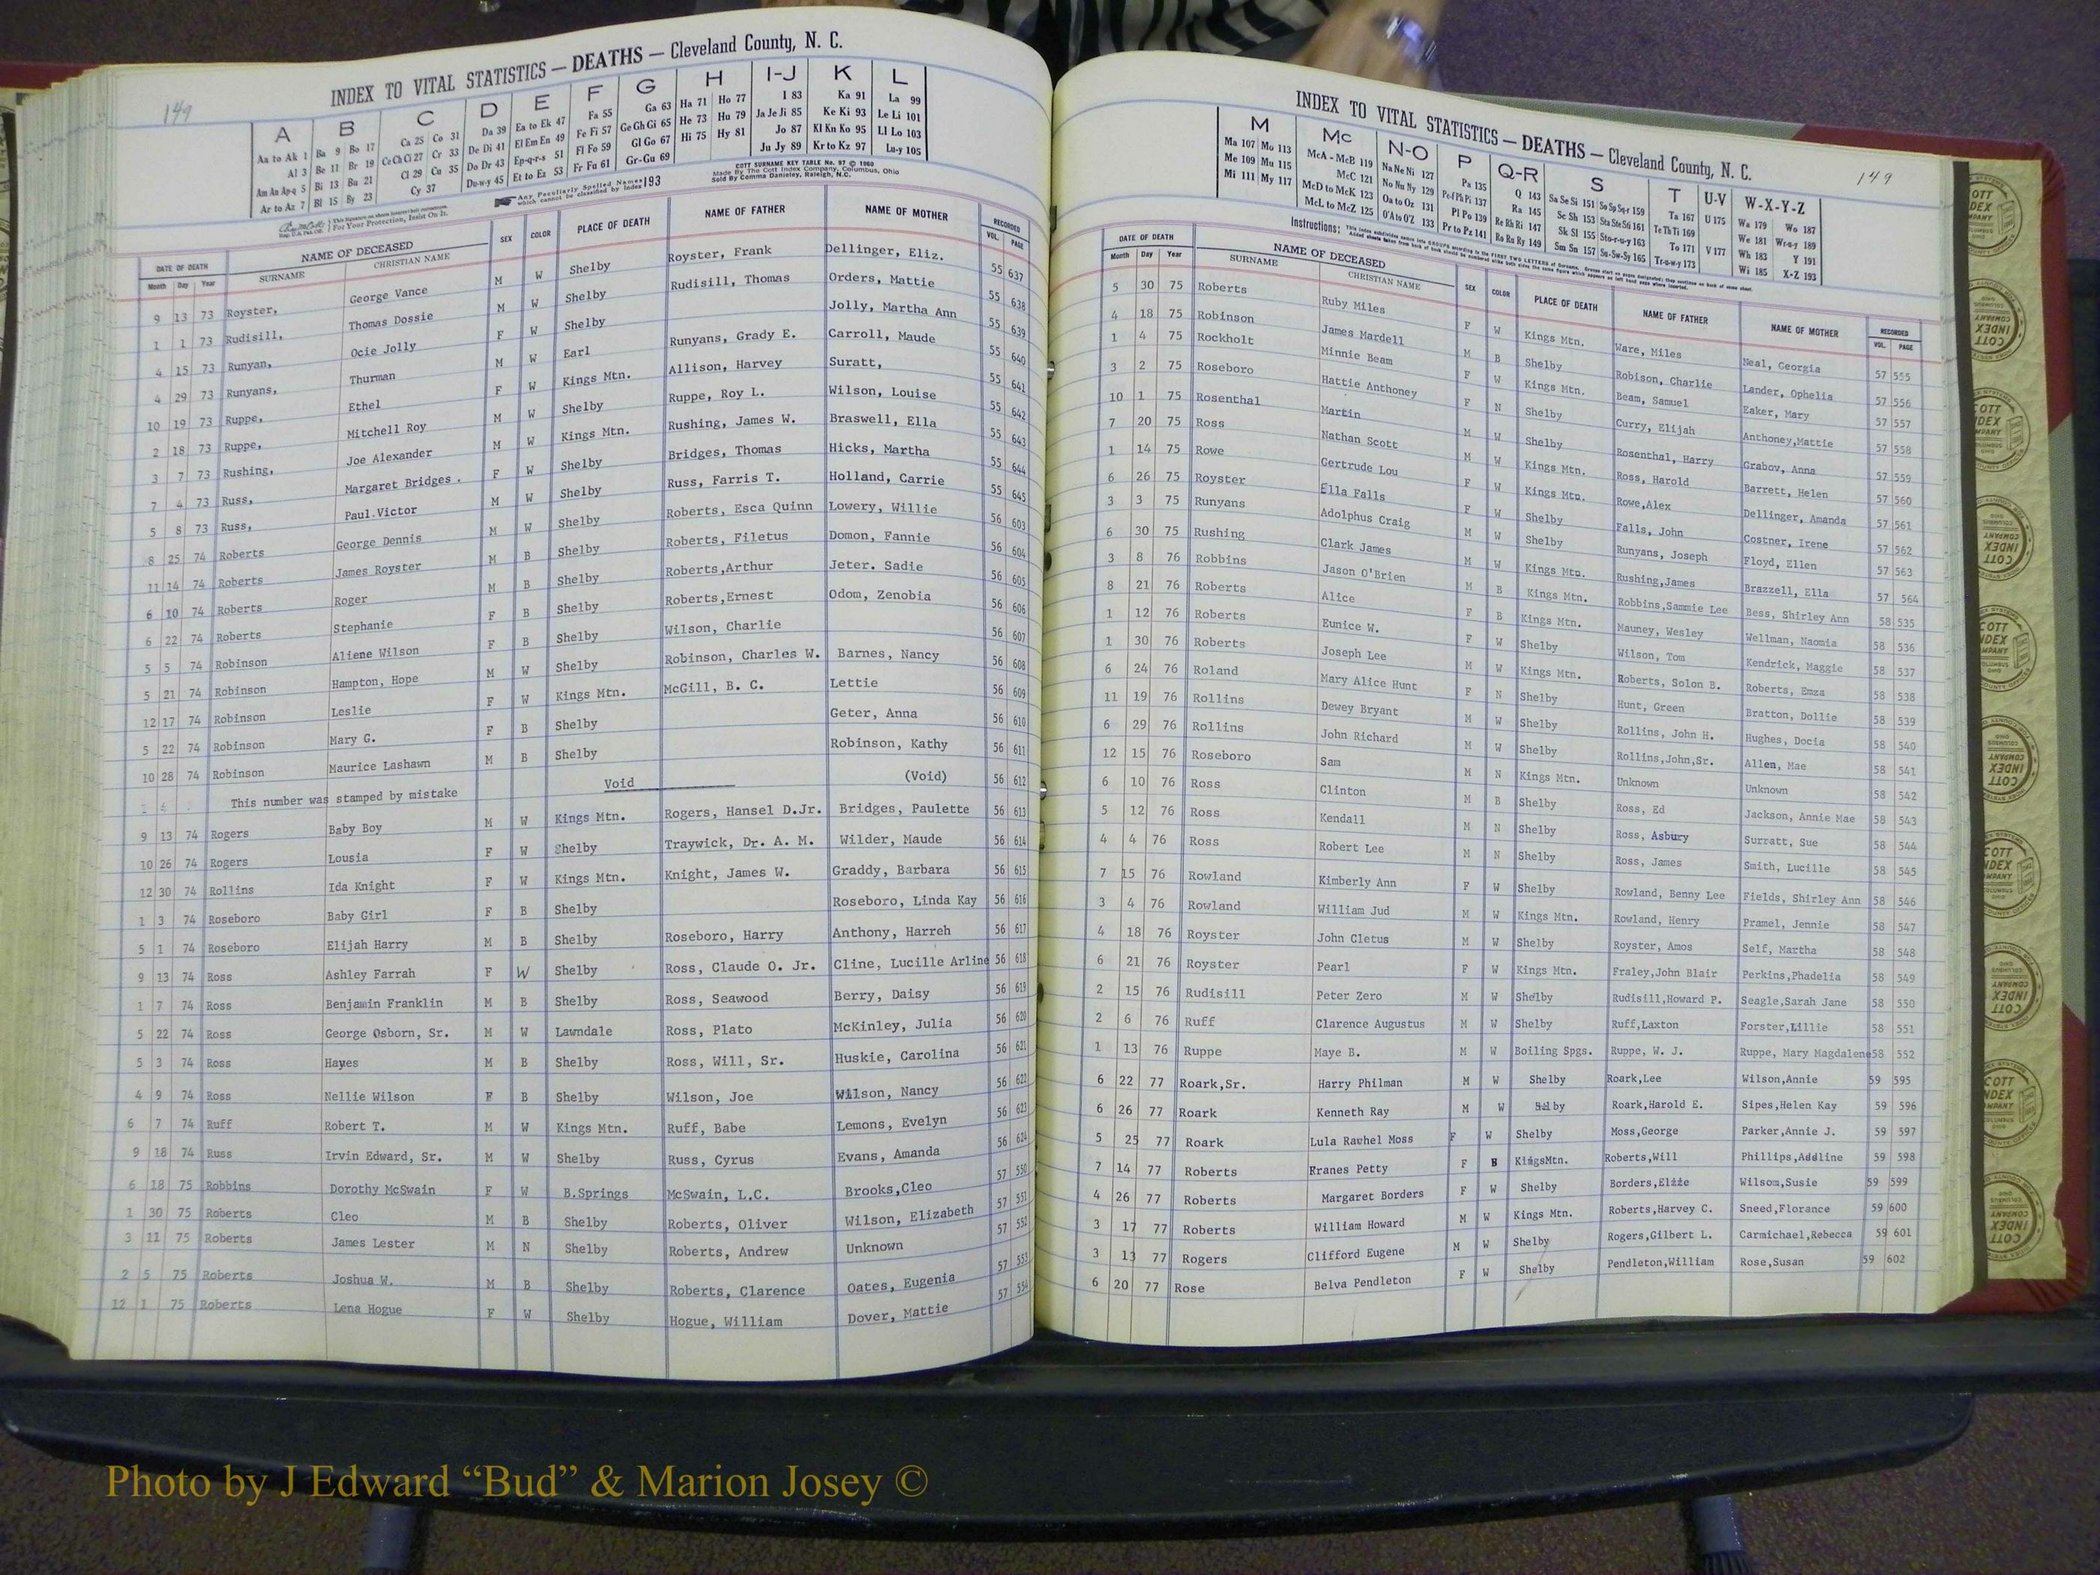 149
INDEX TO VITAL STATISTICS — DEATHS — Cleveland County, N. C.
A B C D E F G H I-J K L
Aa to Ak 1 Ba 9 Bo 17 Ca 25 Co 31 Da 39 Ea to Ek 47 Fa 55 Ga 63 Ha 71 Ho 77 I 83 Ka 91 La 99
Al 3 Be 11 Br 19 Ce Ch Ci 27 Cr 33 De Di 41 El Em En 49 Fe Fi 57 Ge Gh Gi 65 He 73 Hu 79 Ja Je Ji 85 Ke Ki 93 Le Li 101
Am An Ap-q 5 Bi 13 Bu 21 Cl 29 Cu 35 Do Dr 43 Ep-q-r-s 51 Fl Fo 59 Gl Go 67 Hi 75 Hy 81 Jo 87 Kl Kn Ko 95 Ll Lo 103
Ar to Az 7 Bl 15 By 23 Cy 37 Du-w-y 45 Et to Ez 53 Fr Fu 61 Gr-Gu 69 Ju Jy 89 Kr to Kz 97 Lu-y 105
Any Peculiarly Spelled Names which cannot be classified by Index 193
COTT SURNAME KEY TABLE No. 97 © 1960
Made By The Cott Index Company, Columbus, Ohio
Sold By Comma Danieley, Raleigh, N.C.
For Your Protection, Insist On It.
DATE OF DEATH NAME OF DECEASED SEX COLOR PLACE OF DEATH NAME OF FATHER NAME OF MOTHER RECORDED
Month Day Year SURNAME CHRISTIAN NAME VOL. PAGE
9 13 73 Royster, George Vance M W Shelby Royster, Frank Dellinger, Eliz. 55 637
1 1 73 Rudisill, Thomas Dossie M W Shelby Rudisill, Thomas Orders, Mattie 55 638
4 15 73 Runyan, Ocie Jolly F W Shelby Jolly, Martha Ann 55 639
4 29 73 Runyans, Thurman M W Earl Runyans, Grady E. Carroll, Maude 55 640
10 19 73 Ruppe, Ethel F W Kings Mtn. Allison, Harvey Suratt, 55 641
2 18 73 Ruppe, Mitchell Roy M W Shelby Ruppe, Roy L. Wilson, Louise 55 642
3 7 73 Rushing, Joe Alexander M W Kings Mtn. Rushing, James W. Braswell, Ella 55 643
7 4 73 Russ, Margaret Bridges. F W Shelby Bridges, Thomas Hicks, Martha 55 644
5 8 73 Russ, Paul.Victor M W Shelby Russ, Farris T. Holland, Carrie 55 645
8 25 74 Roberts George Dennis M W Shelby Roberts, Esca Quinn Lowery, Willie 56 603
11 14 74 Roberts James Royster M B Shelby Roberts, Filetus Domon, Fannie 56 604
6 10 74 Roberts Roger M B Shelby Roberts,Arthur Jeter. Sadie 56 605
6 22 74 Roberts Stephanie F B Shelby Roberts,Ernest Odom, Zenobia 56 606
5 5 74 Robinson Aliene Wilson F B Shelby Wilson, Charlie 56 607
5 21 74 Robinson Hampton, Hope M W Shelby Robinson, Charles W. Barnes, Nancy 56 608
12 17 74 Robinson Leslie F W Kings Mtn. McGill, B. C. Lettie 56 609
5 22 74 Robinson Mary G. F B Shelby Geter, Anna 56 610
10 28 74 Robinson Maurice Lashawn M B Shelby Robinson, Kathy 56 611
This number was stamped by mistake Void (Void) 56 612
9 13 74 Rogers Baby Boy M W Kings Mtn. Rogers, Hansel D.Jr. Bridges, Paulette 56 613
10 26 74 Rogers Lousia F W Shelby Traywick, Dr. A. M. Wilder, Maude 56 614
12 30 74 Rollins Ida Knight F W Kings Mtn. Knight, James W. Graddy, Barbara 56 615
1 3 74 Roseboro Baby Girl F B Shelby Roseboro, Linda Kay 56 616
5 1 74 Roseboro Elijah Harry M B Shelby Roseboro, Harry Anthony, Harreh 56 617
9 13 74 Ross Ashley Farrah F W Shelby Ross, Claude O. Jr. Cline, Lucille Arline 56 618
1 7 74 Ross Benjamin Franklin M B Shelby Ross, Seawood Berry, Daisy 56 619
5 22 74 Ross George Osborn, Sr. M W Lawndale Ross, Plato McKinley, Julia 56 620
5 3 74 Ross Hayes M B Shelby Ross, Will, Sr. Huskie, Carolina 56 621
4 9 74 Ross Nellie Wilson F B Shelby Wilson, Joe Wilson, Nancy 56 622
6 7 74 Ruff Robert T. M W Kings Mtn. Ruff, Babe Lemons, Evelyn 56 623
9 18 74 Russ Irvin Edward, Sr. M W Shelby Russ, Cyrus Evans, Amanda 56 624
6 18 75 Robbins Dorothy McSwain F W B.Springs McSwain, L.C. Brooks,Cleo 57 550
1 30 75 Roberts Cleo M B Shelby Roberts, Oliver Wilson, Elizabeth 57 551
3 11 75 Roberts James Lester M N Shelby Roberts, Andrew Unknown 57 552
2 5 75 Roberts Joshua W. M B Shelby Roberts, Clarence Oates, Eugenia 57 553
12 1 75 Roberts Lena Hogue F W Shelby Hogue, William Dover, Mattie 57 554
INDEX TO VITAL STATISTICS — DEATHS — Cleveland County, N. C.
149
M Mc N-O P Q-R S T U-V W-X-Y-Z
Ma 107 Mo 113 McA - McB 119 Na Ne Ni 127 Pa 135 Q 143 Sa Se Si 151 So Sp Sq-r 159 Ta 167 U 175 Wa 179 Wo 187
Me 109 Mu 115 McC 121 No Nu Ny 129 Pe-f Ph Pi 137 Ra 145 Sc Sh 153 Sta Ste Sti 161 Te Th Ti 169 We 181 Wr-u-y 189
Mi 111 My 117 McD to McK 123 Oa to Oz 131 Pl Po 139 Re Rh Ri 147 Sk Sl 155 Sto-r-u-y 163 To 171 V 177 Wh 183 Y 191
McL to McZ 125 O'A to O'Z 133 Pr to Pz 141 Ro Ru Ry 149 Sm Sn 157 Su-Sw-Sy 165 Tr-u-w-y 173 Wi 185 X-Z 193
Instructions: This Index subdivides names into GROUPS according to the FIRST TWO LETTERS of Surname.
DATE OF DEATH NAME OF DECEASED SEX COLOR PLACE OF DEATH NAME OF FATHER NAME OF MOTHER RECORDED
Month Day Year SURNAME CHRISTIAN NAME VOL. PAGE
5 30 75 Roberts Ruby Miles F W Kings Mtn. Ware, Miles Neal, Georgia 57 555
4 18 75 Robinson James Mardell M B Shelby Robison, Charlie Lander, Ophelia 57 556
1 4 75 Rockholt Minnie Beam F W Kings Mtn. Beam, Samuel Eaker, Mary 57 557
3 2 75 Roseboro Hattie Anthoney F N Shelby Curry, Elijah Anthoney,Mattie 57 558
10 1 75 Rosenthal Martin M W Shelby Rosenthal, Harry Grabov, Anna 57 559
7 20 75 Ross Nathan Scott M W Kings Mtn. Ross, Harold Barrett, Helen 57 560
1 14 75 Rowe Gertrude Lou F W Kings Mtn. Rowe,Alex Dellinger, Amanda 57 561
6 26 75 Royster Ella Falls F W Shelby Falls, John Costner, Irene 57 562
3 3 75 Runyans Adolphus Craig M W Shelby Runyans, Joseph Floyd, Ellen 57 563
6 30 75 Rushing Clark James M W Kings Mtn. Rushing,James Brazzell, Ella 57 564
3 8 76 Robbins Jason O'Brien M B Kings Mtn. Robbins,Sammie Lee Bess, Shirley Ann 58 535
8 21 76 Roberts Alice F B Kings Mtn. Mauney, Wesley Wellman, Naomia 58 536
1 12 76 Roberts Eunice W. F W Shelby Wilson, Tom Kendrick, Maggie 58 537
1 30 76 Roberts Joseph Lee M W Kings Mtn. Roberts, Solon B. Roberts, Emza 58 538
6 24 76 Roland Mary Alice Hunt F N Shelby Hunt, Green Bratton, Dollie 58 539
11 19 76 Rollins Dewey Bryant M W Shelby Rollins, John H. Hughes, Docia 58 540
6 29 76 Rollins John Richard M W Shelby Rollins,John,Sr. Allen, Mae 58 541
12 15 76 Roseboro Sam M N Kings Mtn. Unknown Unknown 58 542
6 10 76 Ross Clinton M B Shelby Ross, Ed Jackson, Annie Mae 58 543
5 12 76 Ross Kendall M N Shelby Ross, Asbury Surratt, Sue 58 544
4 4 76 Ross Robert Lee M N Shelby Ross, James Smith, Lucille 58 545
7 15 76 Rowland Kimberly Ann F W Shelby Rowland, Benny Lee Fields, Shirley Ann 58 546
3 4 76 Rowland William Jud M W Kings Mtn. Rowland, Henry Pramel, Jennie 58 547
4 18 76 Royster John Cletus M W Shelby Royster, Amos Self, Martha 58 548
6 21 76 Royster Pearl F W Kings Mtn. Fraley,John Blair Perkins,Phadelia 58 549
2 15 76 Rudisill Peter Zero M W Shelby Rudisill,Howard P. Seagle,Sarah Jane 58 550
2 6 76 Ruff Clarence Augustus M W Shelby Ruff,Laxton Forster,Lillie 58 551
1 13 76 Ruppe Maye B. M W Boiling Spgs. Ruppe, W. J. Ruppe, Mary Magdalene 58 552
6 22 77 Roark,Sr. Harry Philman M W Shelby Roark,Lee Wilson,Annie 59 595
6 26 77 Roark Kenneth Ray M W Shelby Roark,Harold E. Sipes,Helen Kay 59 596
5 25 77 Roark Lula Rawhel Moss F W Shelby Moss,George Parker,Annie J. 59 597
7 14 77 Roberts Franes Petty F B KingsMtn. Roberts,Will Phillips,Addline 59 598
4 26 77 Roberts Margaret Borders F W Shelby Borders,Elzie Wilsom,Susie 59 599
3 17 77 Roberts William Howard M W Kings Mtn. Roberts,Harvey C. Sneed,Florance 59 600
3 13 77 Rogers Clifford Eugene M W Shelby Rogers,Gilbert L. Carmichael,Rebecca 59 601
6 20 77 Rose Belva Pendleton F W Shelby Pendleton,William Rose,Susan 59 602
Photo by J Edward “Bud” & Marion Josey ©